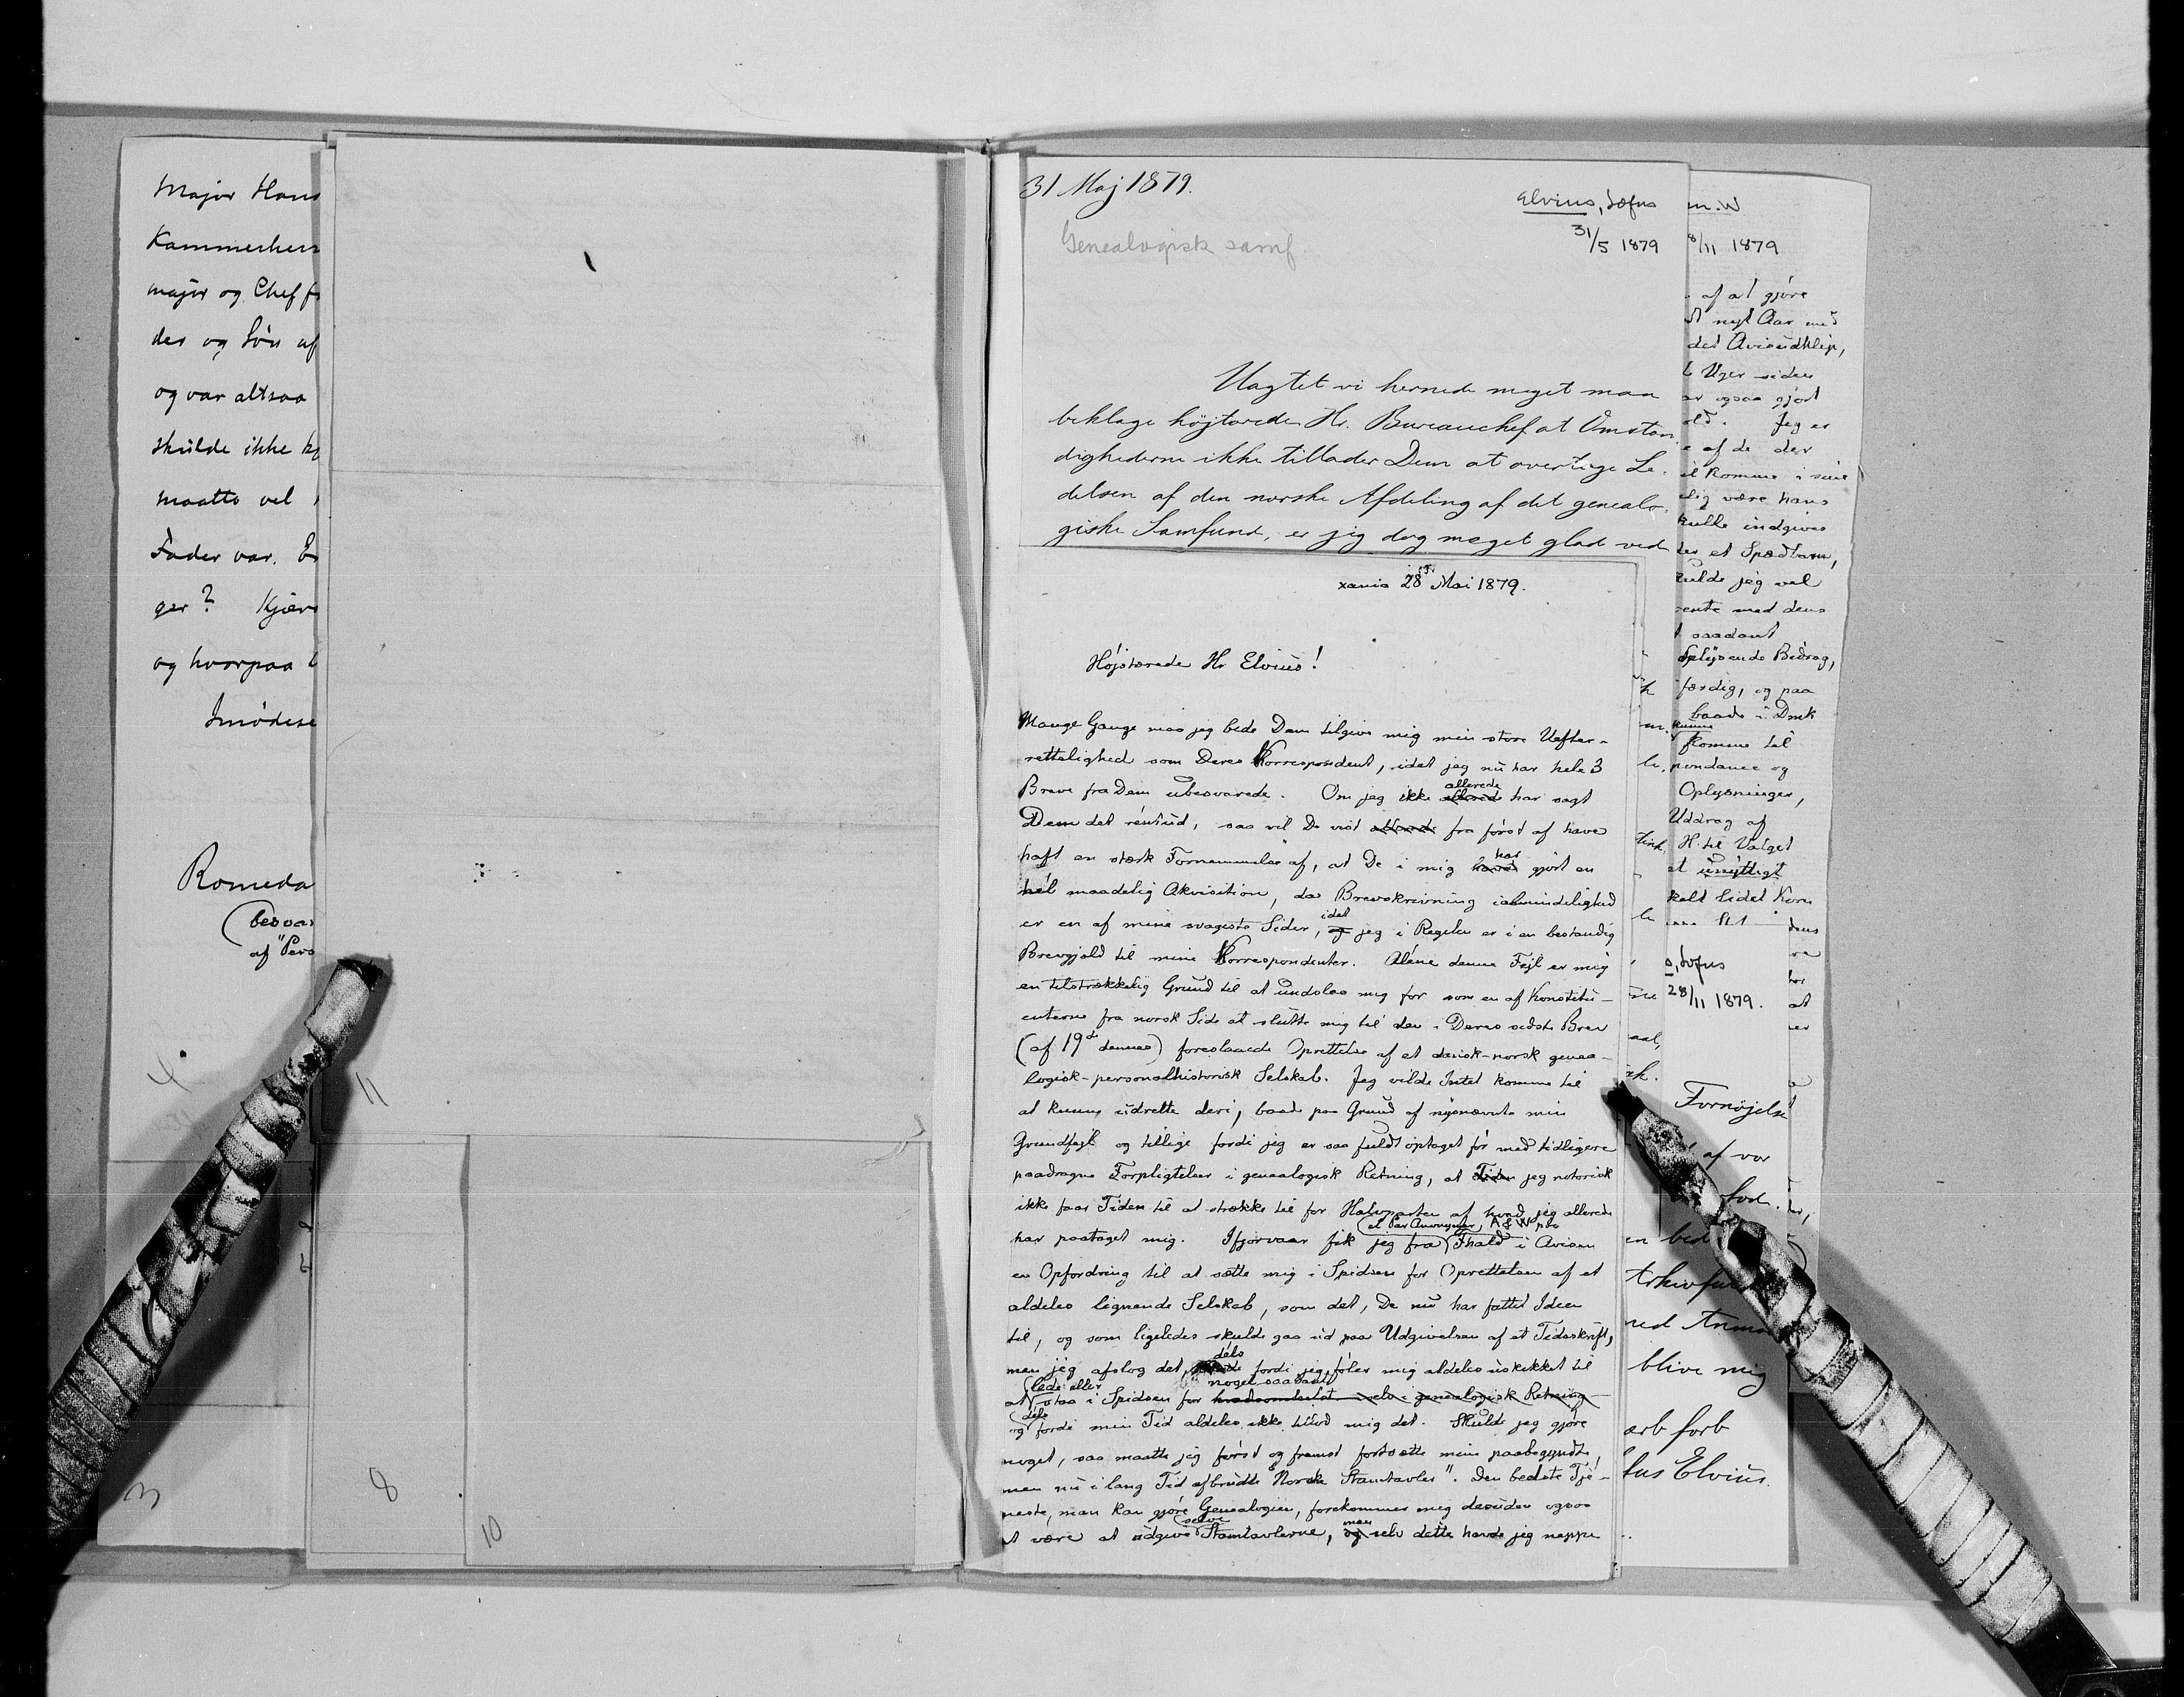 Major Hans
Kammerherr
major og Chef f
der og Søn af
og var altsaa
skulde ikke ko
maatte vel
Fader var. E
ger? Kjær
og hvorpaa
Imødese
Romeda
(besvar
af "Pers
11
8
10
3
31 Maj 1879.
Elvius, Sofus
31/5 1879
Genealogisk samf.
Uagtet vi hernede meget maa
beklage højtærede Hr. Bureauchef at Omstæn-
dighederne ikke tillader Dem at overtage Le-
delsen af den norske Afdeling af det genealo-
giske Samfund, er jeg dog meget glad ved
Xania 28de Mai 1879.
Højstærede Hr Elvius!
Mange Gange maa jeg bede Dem tilgive mig min store Uefter-
rettelighed som Deres Korrespondent, idet jeg nu har hele 3
Breve fra Dem ubesvarede. Om jeg ikke allerede har sagt
Dem det rentud, saa vil De vist allerede fra først af have
haft en stærk Fornemmelse af, at De i mig har gjort en
hel maadelig Akvisition, da Brevskrivning ialmindelighed
er en af mine svageste Sider, idet jeg i Regelen er i en bestandig
Brevgjæld til mine Korrespondenter. Alene denne Fejl er mig
en tilstrækkelig Grund til at undslaa mig for som en af Konstitu-
enterne fra norsk Side at slutte mig til den i Deres sidste Brev
(af 19de dennes) foreslaaede Oprettelse af et dansk-norsk genea-
logisk-personalhistorisk Selskab. Jeg vilde Intet komme til
at kunne udrette deri, baade paa Grund af nysnævnte min
Grundfejl og tillige fordi jeg er saa fuldt optaget før med tidligere
paadragne Forpligtelser i genealogisk Retning, at Tiden jeg notorisk
ikke faar Tiden til at strække til for Halvparten af hvad jeg allerede
har paataget mig. Ifjorvaar fik jeg fra (et Par Anonymer, A & W paa) Fhald i Avisen
en Opfordring til at sætte mig i Spidsen for Oprettelsen af et
aldeles lignende Selskab, som det, De nu har fattet Ideen
til, og som ligeledes skulde gaa ud paa Udgivelsen af et Tidsskrift,
men jeg afslog det, dels fordi jeg føler mig aldeles uskikket til
at (lede eller) staa i Spidsen for noget saadant hvadsomhelst selv i genealogisk Retning
og (dels) fordi min Tid aldeles ikke tillod mig det. Skulde jeg gjøre
noget, saa maatte jeg først og fremst fortsætte mine paabegyndte,
men nu i lang Tid afbrudte "Norske Stamtavler". Den bedste Tje-
neste, man kan gjøre Genealogien, forekommer mig desuden ogsaa
at være at udgive (selve) Stamtavlerne, men og selv dette havde jeg neppe
m.W
8/11 1879
af at gjøre
dt nyt Aar med
det Avisudklip,
6 Uger siden
ar ogsaa gjort
old. Jeg er
e af de der
il komme i sine
elig være hans
kulle indgives
der et Spædbarn,
kulde jeg vel
vente med dens
t saadant
Oplysende Bidrag,
færdig, og paa
baade i Druk
kunne
komme til
pondance og
Oplysninger,
Uddrag af
H. til Valget
et unyttigt
kelt lidet Korn
s, Sofus
28/11 1879.
Fornøjelse
af vor
en bed
Arkivfu
blive mig
ærb forb
fus Elvius.